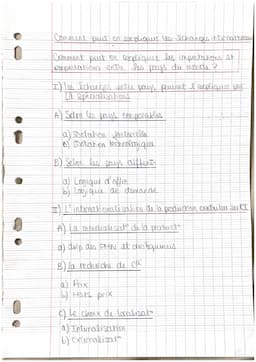 Comment peut on expliquer les échanges internationaux
Comment peut on expliquer les importations et
exportations entre les pays du monde ?
I) les échanges entre pays peuvent s'expliquer par
la spécialisation
A) Selon les pays comparables
a) Dotation factorielle
b) Dotation technologique
B) Selon les pays différents
a) Logique d'offre
b) Logique de demande
II) L'internationalisation de la production contribue aux EI
A) La mondialisat° de la product°
a) dvp des FMN et
B) la recherche de
a) Prix
b) Hors prix
C) le choix de localisat°
a) Internalisation
b) Externalisat°